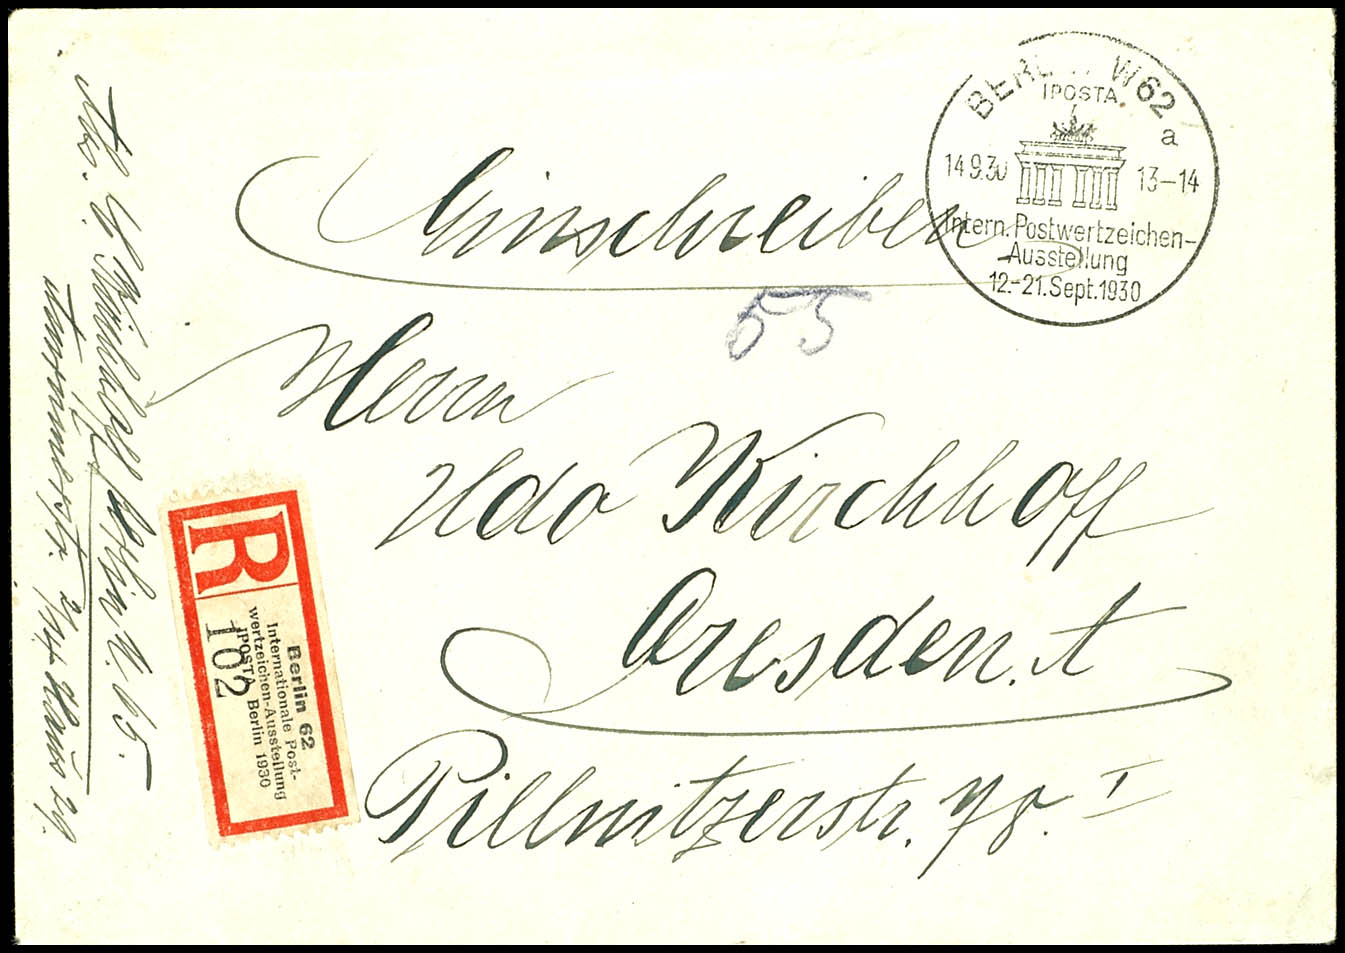 BERL W 62
IPOSTA
a
14.9.30 13-14
Intern. Postwertzeichen-
Ausstellung
12.-21. Sept. 1930
Einschreiben
55
Herrn
Udo Kirchhoff
Dresden. A
Pillnitzerstr. 78. I
R
Berlin 62
Internationale Post-
wertzeichen-Ausstellung
IPOSTA Berlin 1930
102
Abs. Berlin N. 65.